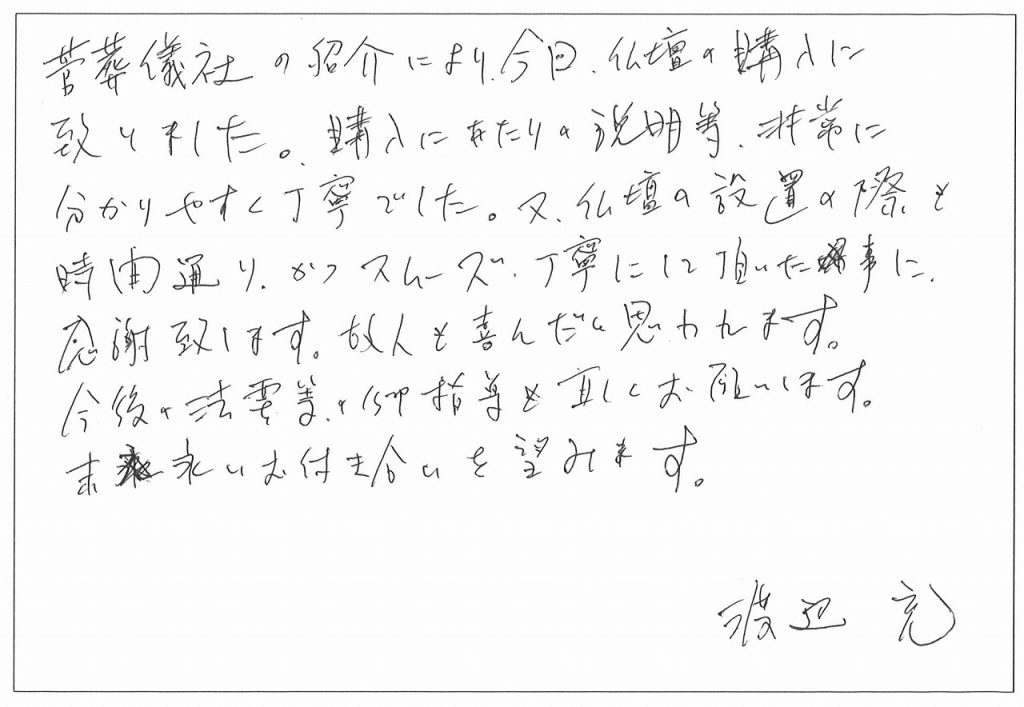 菅葬儀社の紹介により、今回、仏壇の購入に
致りました。購入にあたりの説明等、非常に
分かりやすく丁寧でした。又、仏壇の設置の際も
時間通り、かつスムーズ、丁寧にして頂いた事に、
感謝致します。故人も喜んだと思われます。
今後の法要等の御指導も宜しくお願いします。
末永いお付き合いを望みます。
渡辺 充